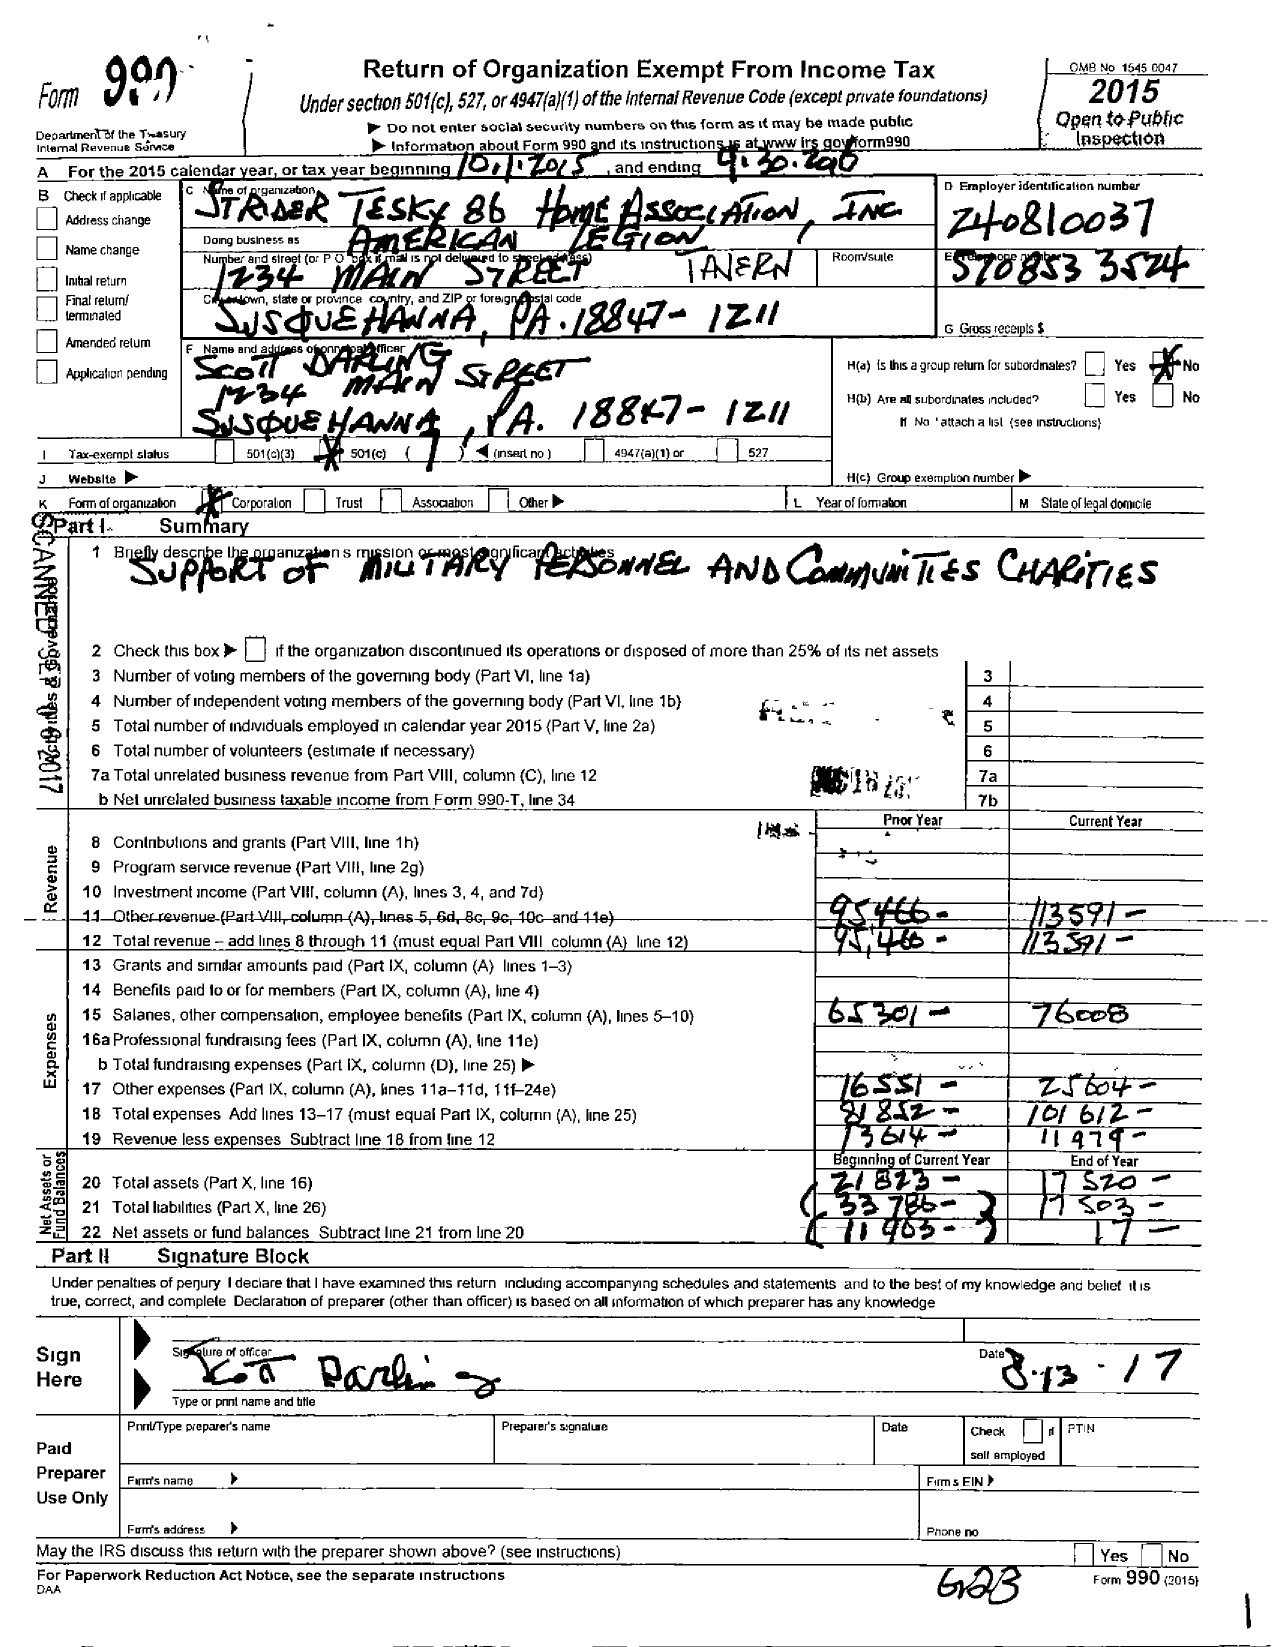 Form 990
Return of Organization Exempt From Income Tax
OMB No 1545 0047
Under section 501(c), 527, or 4947(a)(1) of the Internal Revenue Code (except private foundations)
2015
Department of the Treasury
Internal Revenue Service
▶ Do not enter social security numbers on this form as it may be made public
▶ Information about Form 990 and its instructions is at www irs gov/form990
Open to Public
Inspection
A For the 2015 calendar year, or tax year beginning 10.1.2015 , and ending 9.30.2016
B Check if applicable
Address change
Name change
Initial return
Final return/
terminated
Amended return
Application pending
C Name of organization
STRIDER TESKY 86 HOME ASSOCIATION, INC
Doing business as
AMERICAN LEGION
Number and street (or P O box if mail is not delivered to street address)
Room/suite
1234 MAIN STREET TAVERN
City or town, state or province country, and ZIP or foreign postal code
SUSQUEHANNA, PA. 18847-1211
D Employer identification number
240810037
E Telephone number
570 853 3524
G Gross receipts $
F Name and address of principal officer
SCOTT DARLING
1234 MAIN STREET
SUSQUEHANNA, PA. 18847-1211
H(a) Is this a group return for subordinates? Yes X No
H(b) Are all subordinates included? Yes No
If No ' attach a list (see instructions)
I Tax-exempt status 501(c)(3) X 501(c) ( 7 ) ◀ (insert no ) 4947(a)(1) or 527
J Website ▶
H(c) Group exemption number ▶
K Form of organization X Corporation Trust Association Other ▶
L Year of formation
M State of legal domicile
Part I Summary
SCANNED
2017
Activities & Governance
1 Briefly describe the organization s mission or most significant activities
SUPPORT OF MILITARY PERSONNEL AND COMMUNITIES CHARITIES
2 Check this box ▶ if the organization discontinued its operations or disposed of more than 25% of its net assets
3 Number of voting members of the governing body (Part VI, line 1a) 3
4 Number of independent voting members of the governing body (Part VI, line 1b) 4
5 Total number of individuals employed in calendar year 2015 (Part V, line 2a) 5
6 Total number of volunteers (estimate if necessary) 6
7a Total unrelated business revenue from Part VIII, column (C), line 12 7a
b Net unrelated business taxable income from Form 990-T, line 34 7b
Prior Year Current Year
Revenue
8 Contributions and grants (Part VIII, line 1h)
9 Program service revenue (Part VIII, line 2g)
10 Investment income (Part VIII, column (A), lines 3, 4, and 7d)
11 Other revenue (Part VIII, column (A), lines 5, 6d, 8c, 9c, 10c and 11e) 95466- 113591-
12 Total revenue – add lines 8 through 11 (must equal Part VIII column (A) line 12) 95,466- 113591-
Expenses
13 Grants and similar amounts paid (Part IX, column (A) lines 1–3)
14 Benefits paid to or for members (Part IX, column (A), line 4)
15 Salaries, other compensation, employee benefits (Part IX, column (A), lines 5–10) 65301- 76008
16a Professional fundraising fees (Part IX, column (A), line 11e)
b Total fundraising expenses (Part IX, column (D), line 25) ▶
17 Other expenses (Part IX, column (A), lines 11a–11d, 11f–24e) 16551- 25604-
18 Total expenses Add lines 13–17 (must equal Part IX, column (A), line 25) 81852- 101612-
19 Revenue less expenses Subtract line 18 from line 12 13614- 11979-
Net Assets or
Fund Balances
Beginning of Current Year End of Year
20 Total assets (Part X, line 16) 21823- 17520-
21 Total liabilities (Part X, line 26) (33786-) 17503-
22 Net assets or fund balances Subtract line 21 from line 20 (11963-) 17-
Part II Signature Block
Under penalties of perjury I declare that I have examined this return including accompanying schedules and statements and to the best of my knowledge and belief it is
true, correct, and complete Declaration of preparer (other than officer) is based on all information of which preparer has any knowledge
Sign
Here
Signature of officer
Date
Scott Darling
8-13-17
Type or print name and title
Paid
Preparer
Use Only
Print/Type preparer's name
Preparer's signature
Date
Check if
self employed
PTIN
Firm's name ▶
Firm s EIN ▶
Firm's address ▶
Phone no
May the IRS discuss this return with the preparer shown above? (see instructions) Yes No
For Paperwork Reduction Act Notice, see the separate instructions
DAA
623
Form 990 (2015)
1